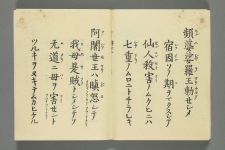 頻婆娑羅王勅セシメ
宿因ソノ期ヲマタスシテ
仙人殺害ノムクヒニハ
七重ノムロニトチラレキ
阿闍世王ハ瞋怒シテ
我母是賊トシメシテソ
无道ニ母ヲ害セント
ツルキヲヌキテムカヒケル